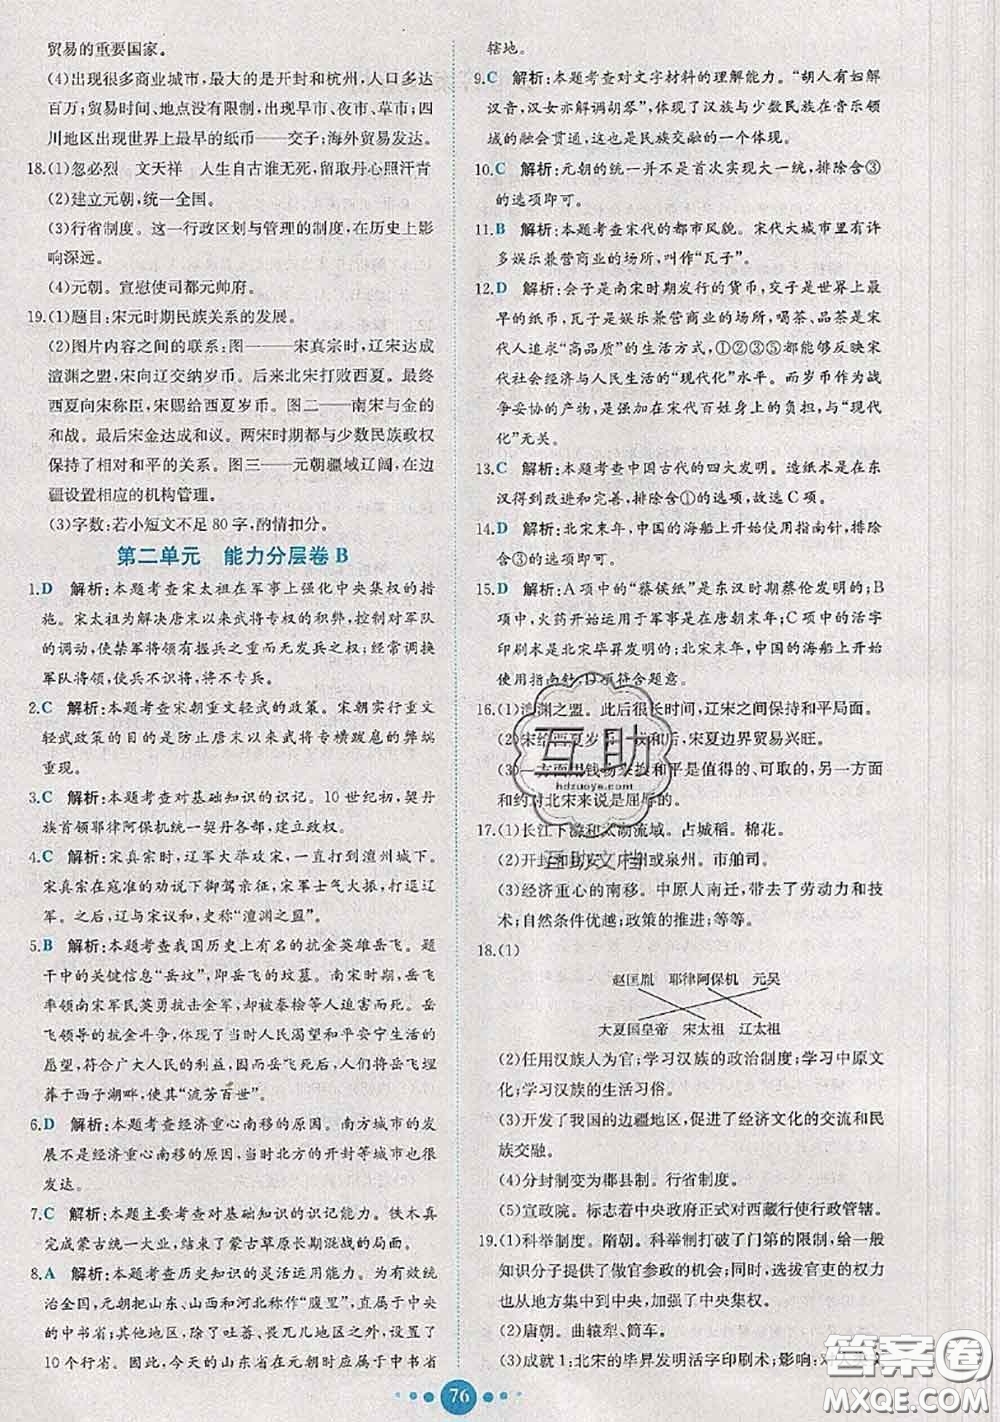 贸易的重要国家。
(4)出现很多商业城市,最大的是开封和杭州,人口多达
百万;贸易时间、地点没有限制,出现早市、夜市、草市;四
川地区出现世界上最早的纸币——交子;海外贸易发达。
18.(1)忽必烈 文天祥 人生自古谁无死,留取丹心照汗青
(2)建立元朝,统一全国。
(3)行省制度。这一行政区划与管理的制度,在历史上影
响深远。
(4)元朝。宣慰使司都元帅府。
19.(1)题目:宋元时期民族关系的发展。
(2)图片内容之间的联系:图一——宋真宗时,辽宋达成
澶渊之盟,宋向辽交纳岁币。后来,北宋打败西夏。最终
西夏向宋称臣,宋赐给西夏岁币。图二——南宋与金的
和战。最后宋金达成和议。两宋时期都与少数民族政权
保持了相对和平的关系。图三——元朝疆域辽阔,在边
疆设置相应的机构管理。
(3)字数:若小短文不足80字,酌情扣分。
第二单元 能力分层卷B
1.D 解析:本题考查宋太祖在军事上强化中央集权的措
施。宋太祖为解决唐末以来武将专权的积弊,控制对军队
的调动,使禁军将领有握兵之重而无发兵之权;经常调换
军队将领,使兵不识将,将不专兵。
2.C 解析:本题考查宋朝重文轻武的政策。宋朝实行重文
轻武政策的目的是防止唐末以来武将专横跋扈的弊端
重现。
3.C 解析:本题考查对基础知识的识记。10世纪初,契丹
族首领耶律阿保机统一契丹各部,建立政权。
4.C 解析:宋真宗时,辽军大举攻宋,一直打到澶州城下。
宋真宗在寇准的劝说下御驾亲征,宋军士气大振,打退辽
军。之后,辽与宋议和,史称“澶渊之盟”。
5.B 解析:本题考查我国历史上有名的抗金英雄岳飞。题
干中的关键信息“岳坟”,即岳飞的坟墓。南宋时期,岳飞
率领南宋军民英勇抗击金军,却被秦桧等人迫害而死。岳
飞领导的抗金斗争,体现了当时人民渴望和平安宁生活的
愿望,符合广大人民的利益。因而岳飞墓历经千年,埋
葬于西子湖畔,使其“流芳百世”。
6.D 解析:本题考查经济重心南移的原因。南方城市的发
展不是经济重心南移的原因,当时北方的开封等城市也很
发达。
7.C 解析:本题主要考查对基础知识的识记能力。铁木真
完成蒙古统一大业,结束了蒙古草原长期混战的局面。
8.A 解析:本题考查历史知识的灵活运用能力。为有效统
治全国,元朝把山东、山西和河北称作“腹里”,直属于中央
的中书省;其他地方,除了吐蕃、畏兀儿地区之外,设置了
10个行省。因此,今天的山东省在元朝时应属于中书省
辖地。
9.C 解析:本题考查对文字材料的理解能力。“胡人有妇解
汉音,汉女亦解调胡琴”,体现了汉族与少数民族在音乐领
域的融会贯通,这也是民族交融的一个体现。
10.C 解析:元朝的统一并不是首次实现大一统,排除含③
的选项即可。
11.B 解析:本题考查宋代的都市风貌。宋代大城市里有许
多娱乐兼营商业的场所,叫作“瓦子”。
12.D 解析:会子是南宋时期发行的货币,交子是世界上最
早的纸币,瓦子是娱乐兼营商业的场所,喝茶、品茶是宋
代人追求“高品质”的生活方式,①②③⑤都能够反映宋
代社会经济与人民生活的“现代化”水平。而岁币作为战
争妥协的产物,是强加在宋代百姓身上的负担,与“现代
化”无关。
13.C 解析:本题考查中国古代的四大发明。造纸术是在东
汉得到改进和完善,排除含①的选项,故选C项。
14.D 解析:北宋末年,中国的海船上开始使用指南针,排除
含③的选项即可。
15.D 解析:A项中的“蔡侯纸”是东汉时期蔡伦发明的;B
项中,火药开始运用于军事是在唐朝末年;C项中的活字
印刷术是北宋毕昇发明的;北宋末年,中国的海船上开始
使用指南针;D项符合题意。
16.(1)澶渊之盟。此后很长时间,辽宋之间保持和平局面。
(2)宋给西夏岁币。议和后,宋夏边界贸易兴旺。
(3)一方面用钱物来换和平是值得的、可取的,另一方面
和约对北宋来说是屈辱的。
17.(1)长江下游和太湖流域。占城稻。棉花。
(2)开封和临安。广州或泉州。市舶司。
(3)经济重心的南移。中原人南迁,带去了劳动力和技
术;自然条件优越;政策的推进;等等。
18.(1)
赵匡胤 耶律阿保机 元昊
大夏国皇帝 宋太祖 辽太祖
(2)任用汉族人为官;学习汉族的政治制度;学习中原文
化;学习汉族的生活习俗。
(3)开发了我国的边疆地区,促进了经济文化的交流和民
族交融。
(4)分封制变为郡县制。行省制度。
(5)宣政院。标志着中央政府正式对西藏行使行政管辖。
19.(1)科举制度。隋朝。科举制打破了门第的限制,给一般
知识分子提供了做官参政的机会;同时,选拔官吏的权力
也从地方集中到中央,加强了中央集权。
(2)唐朝。曲辕犁、筒车。
(3)成就1:北宋的毕昇发明活字印刷术;影响:对
76
互助
hdzuoye.com
互助文档
答案圈
MXQE.COM